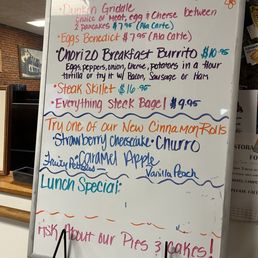 • Dunkin Gridale
Choice of Meat, egg & Cheese between
2 Pancakes $7.95 (Ala Carte)
• Eggs Benedict $7.95 (Ala Carte)
• Chorizo Breakfast Burrito $10.95
Eggs, peppers, onion, cheese, potatoes in a flour
tortilla or try it w/ Bacon, Sausage or Ham
• Steak Skillet $16.95
• Everything Steak Bagel $9.95
Try one of our New Cinnamon Rolls
Strawberry Cheesecake • Churro
Fruity Pebbles • Caramel Apple
Vanilla Peach
Lunch Special:
Ask About our Pies & Cakes!